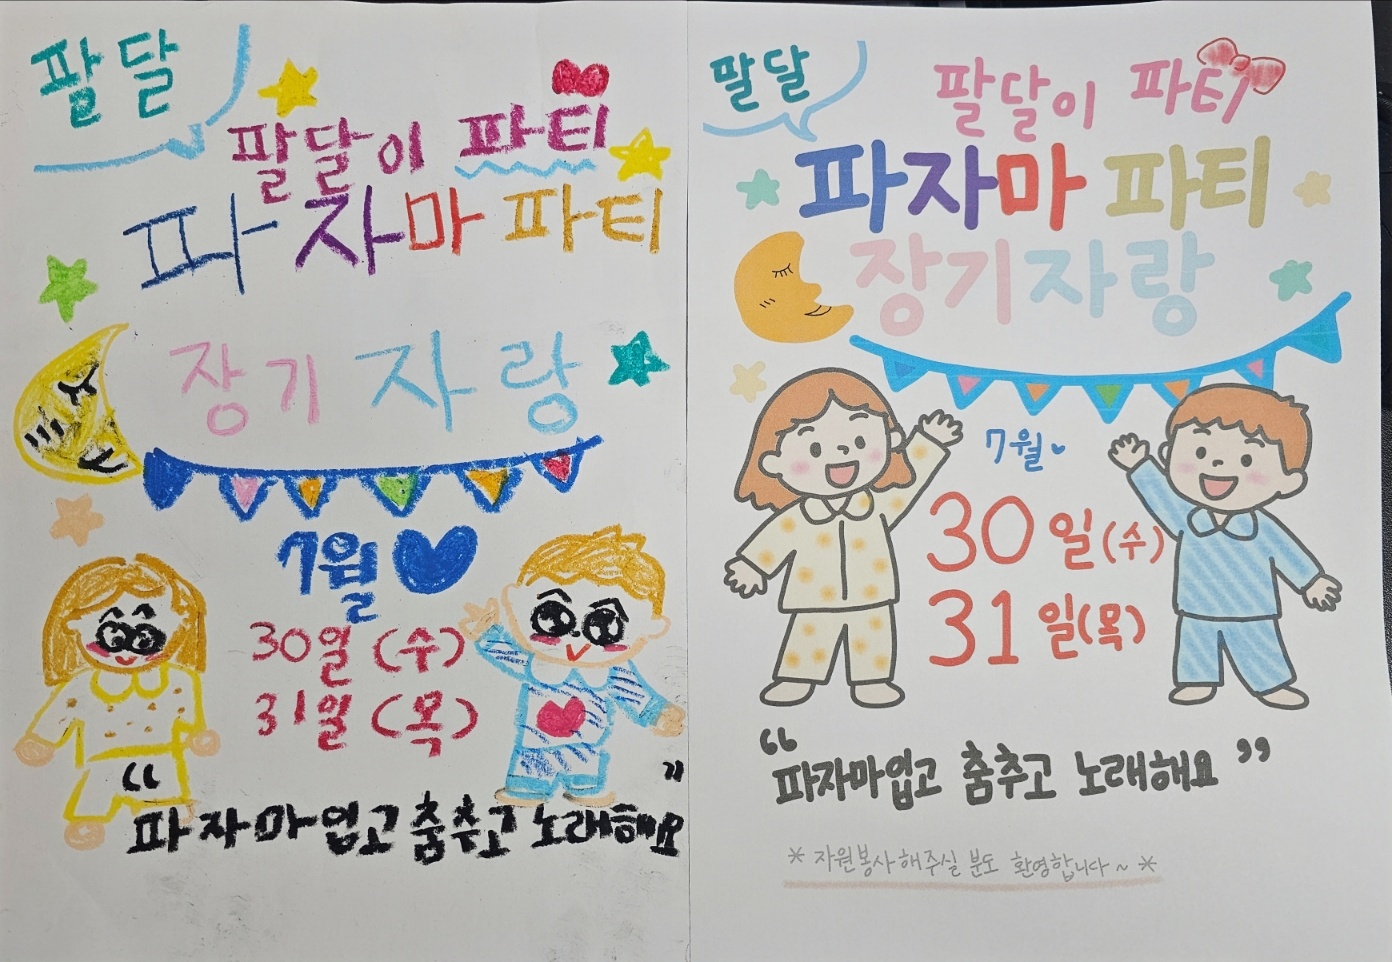 팔달
팔달이 파티
파자마 파티
장기 자랑
7월
30일 (수)
31일 (목)
“
파자마 입고 춤추고 노래해요
”
팔달
팔달이 파티
파자마 파티
장기자랑
7월
30일 (수)
31일 (목)
“파자마입고 춤추고 노래해요”
* 자원봉사 해주실 분도 환영합니다~ *